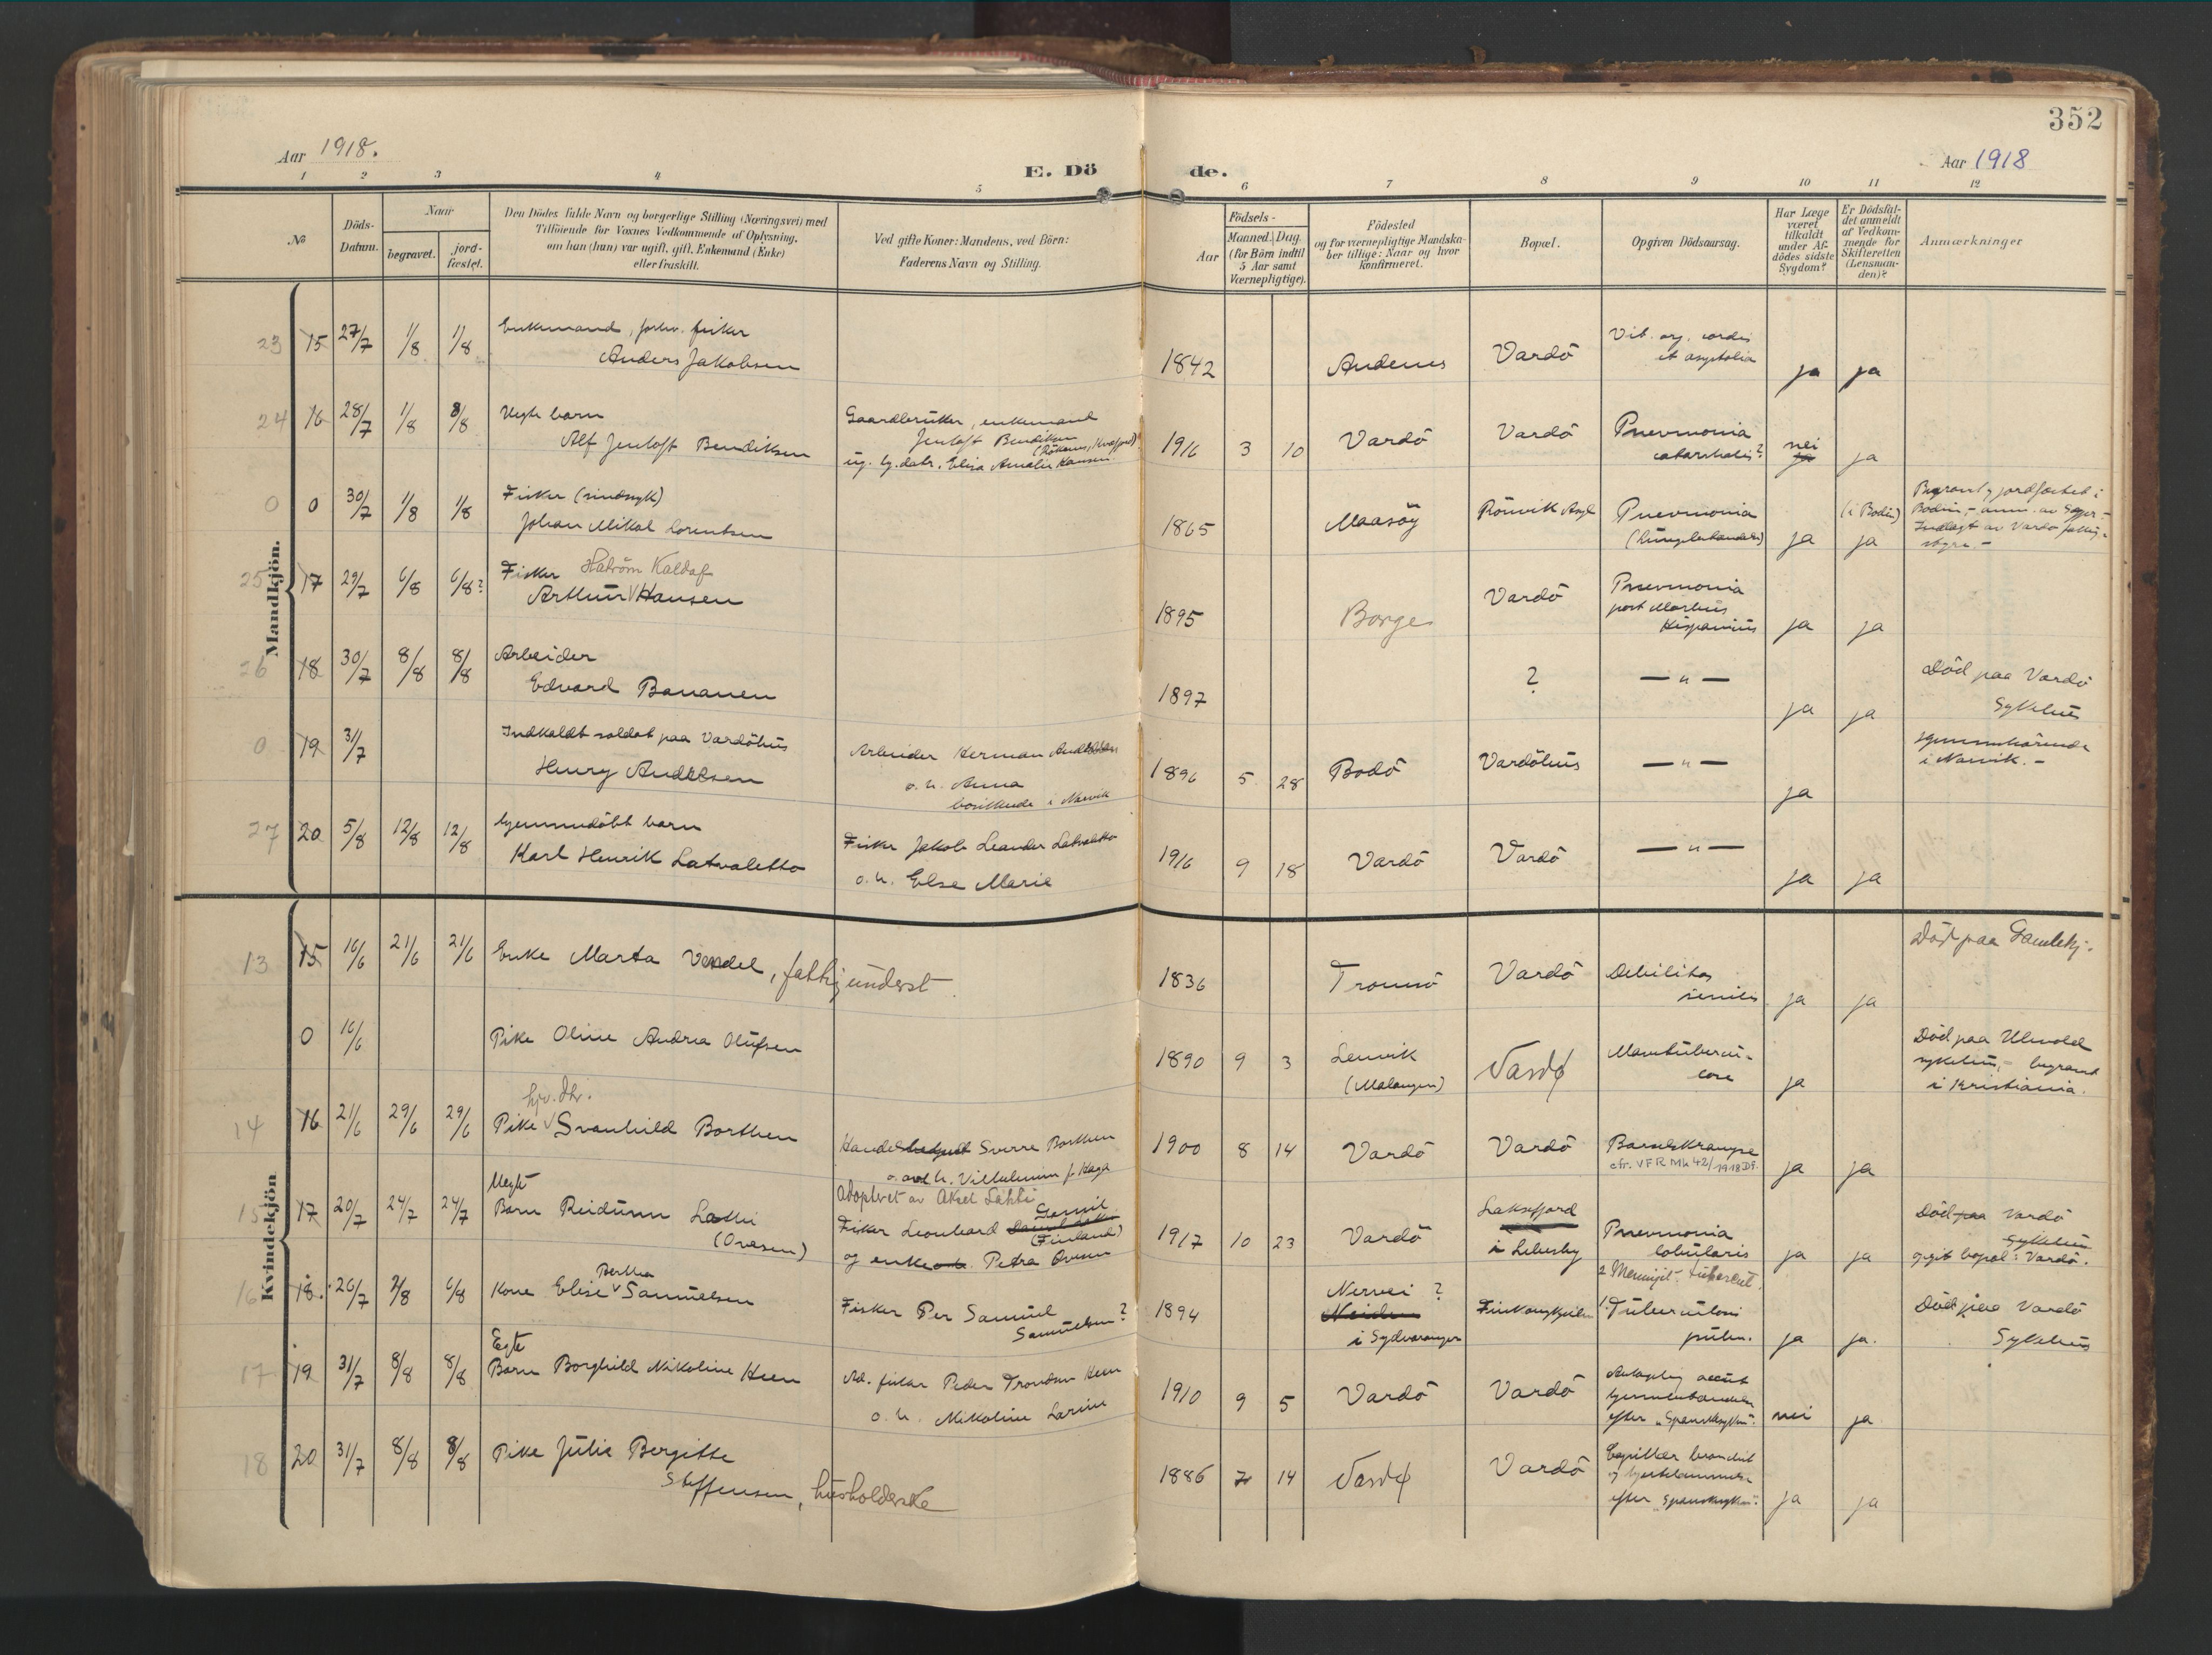 352
Aar 1918.
E. Döde.
Aar 1918
1 2 3 4 5 6 7 8 9 10 11 12
No
Döds-Datum.
Naar
begravet.
jord-fæstet.
Den Dödes fulde Navn og borgerlige Stilling (Næringsvei) med
Tilföiende for Voxnes Vedkommende af Oplysning,
om han (hun) var ugift, gift, Enkemand (Enke)
eller fraskilt.
Ved gifte Koner: Mandens, ved Börn:
Faderens Navn og Stilling.
Födsels-
Aar
Maaned. Dag.
(for Börn indtil
5 Aar samt
Værnepligtige).
Födested
og for værnepligtige Mandska-
ber tillige: Naar og hvor
konfirmeret.
Bopæl.
Opgiven Dödsaarsag.
Har Læge
været
tilkaldt
under Af-
dödes sidste
Sygdom?
Er Dödsfal-
det anmeldt
af Vedkom-
mende for
Skifteretten
(Lensman-
den)?
Anmærkninger
Mandkjön.
23 15 27/7 1/8 1/8 Enkemand, forhv. fisker
Anders Jakobsen
1842 Andenes Vardö Vit. org. cordis
et asystolia ja ja
24 16 28/7 1/8 8/8 Uegte barn
Alf Jentoft Bendiksen
Gaardbruker, enkemand
Jentoft Bendiksen
ug. Elisa Amalie Hansen
1916 3 10 Vardö Vardö Pneumonia
catarrhalis? nei ja ja
0 0 30/7 1/8 1/8 Fisker (sindssyk)
Johan Mikal Lorentsen
1865 Maasöy Rönvik Asyl Pneumonia
ja (i Bodin) ja
25 17 29/7 6/8 6/8? Fisker
Arthur Hansen
1895 Borge Vardö Pneumonia
post Morbus
Hispanius ja ja
26 18 30/7 8/8 8/8 Arbeider
Edvard Bananen
1897 ? — " — ja ja
Död paa Vardö
Sykehus
0 19 31/7 Indkaldt soldat paa Vardöhus
Henry Andersen
Arbeider Herman Andersen
o. h. Anna
bosittende i Narvik
1896 5 28 Bodö Vardöhus — " — ja
Hjemmehörende
i Narvik. –
27 20 5/8 12/8 12/8 Hjemmedöbt barn
Karl Henrik Latvaletto
Fisker Jakob Leander Latvaletto
o. h. Else Marie
1916 9 18 Vardö Vardö — " — ja ja
Kvindekjön
13 15 16/6 21/6 21/6 Enke Marta Vendel, fattigunderst.
1836 Tromsö Vardö Debilitas
senilis ja ja
Död paa Gamlehj.
0 16/6 Pike Oline Andrea Olufsen
1890 9 3 Lenvik
(Malangen) Vardø
ja
Död paa Ulevold
sykehus, – begravet
i Kristiania.
14 16 21/6 29/6 29/6 hjv. dtr.
Pike Svanhild Borthen
Sverre Borthen
1900 8 14 Vardö Vardö Barselkrampe
cfr. VFR Mk 42/1918 D9. ja ja
15 17 20/7 24/7 24/7 Uegte
Barn Reidunn Lahti
(Ovesen)
Adopteret av Aksel Lahti
Fisker Leonhard
(Finland)
og enke Petra Ovesen
1917 10 23 Vardö Laksefjord
i Lebesby Pneumonia
lobularis ja ja
Död paa Vardö
Sykehus
opgit bopæl: Vardö.
16 18. 26/7 2/8 6/8 Bertha
Kone Elise Samuelsen
Fisker Per Samuel
Samuelsen?
1894 Nervei ?
Neiden
i Sydvaranger
2 Meningit. tubercul.
1. Tuberculosis
pulm. ja ja.
Död paa Vardö
Sykehus
17 19 31/7 8/8 8/8 Egte
Barn Borghild Nikoline Heen
fisker Peder Trondsen Heen
o. h. Nikoline Larine
1910 9 5 Vardö Vardö
efter "Spansksyken". nei ja
18 20 31/7 8/8 8/8 Pike Julie Bergitte
Steffensen, husholderske
1886 7 14 Vardø Vardö Capillær bronchit
og hjertelammelse
efter "Spansksyken". ja ja